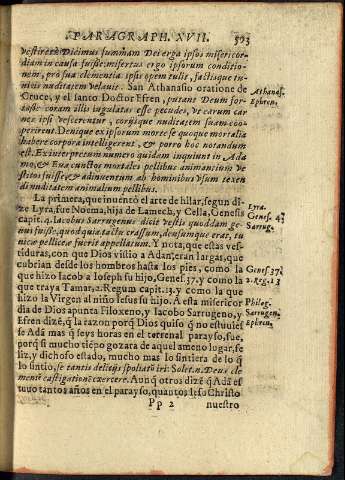 PARAGRAPH. XVII. 593
vestirere? Dicimus summam Dei erga ipsos misericor-
diam in causa fuisse: misertus ergo ipsorum conditio-
nem, pro sua clementia ipsis opem tulit, factisque tu-
nicis nuditatem velauit. San Athanasio oratione de
Cruce, y el sancto Doctor Efren, putant Deum for-
tasse coram illis iugulasse esse pecudes, vt earum car-
nes ipsi vescerentur, corijsque nuditatem suam coo-
perirent. Denique ex ipsorum morte se quoque mortalia
habere corpora intelligerent, & porro hoc notandum
est. Ex interpretum numero quidam inquiunt in Ada-
mo, & Eua cunctos mortales pellibus animantium ve-
stitos fuisse, & adinuentum ab hominibus vsum texen
di nuditatem animalium pellibus.
Athanas.
Ephren.
La primera, que inuentó el arte de hilar, segun di-
ze Lyra, fue Noema, hija de Lamech, y Cella, Genesis
capit. 4. Iacobus Sarrugenus dicit vestis quoddam ge-
nus fuisse, quod quia tactu crassum, densumque erat, tu
nicæ pelliceæ fuerit appellatum. Y nota, que estas ves-
tiduras, con que Dios vistio a Adan, eran largas, que
cubrian desde los hombros hasta los pies, como la
que hizo Iacob a Ioseph su hijo, Genes. 37. y como la
que traya Tamar, 2. Regum capit. 13. y como la que
hizo la Virgen al niño Iesus su hijo. A esta misericor
dia de Dios apunta Filoxeno, y Iacobo Sarrugeno, y
Efren dizē, q̃ la razon porq̃ Dios quiso q̃ no estuuiesse
Adā mas q̃ seys horas en el terrenal parayso, fue,
porq̃ si mucho tiēpo gozara de aquel ameno lugar, fe
liz, y dichoso estado, mucho mas lo sintiera de lo q̃
lo sintio, se tantis delicijs spoliatũ iri: Solet. n. Deus cle
menter castigationē exercere. Aunq̃ otros dizē q̃ Adā es
tuuo tantos años en el parayso, quantos Iesu Christo
Lyra.
Genes. 4.
Sarrug.
Genes. 37.
2. Reg. 13
Phileg.
Sarrugen.
Ephren.
Pp 2 nuestro